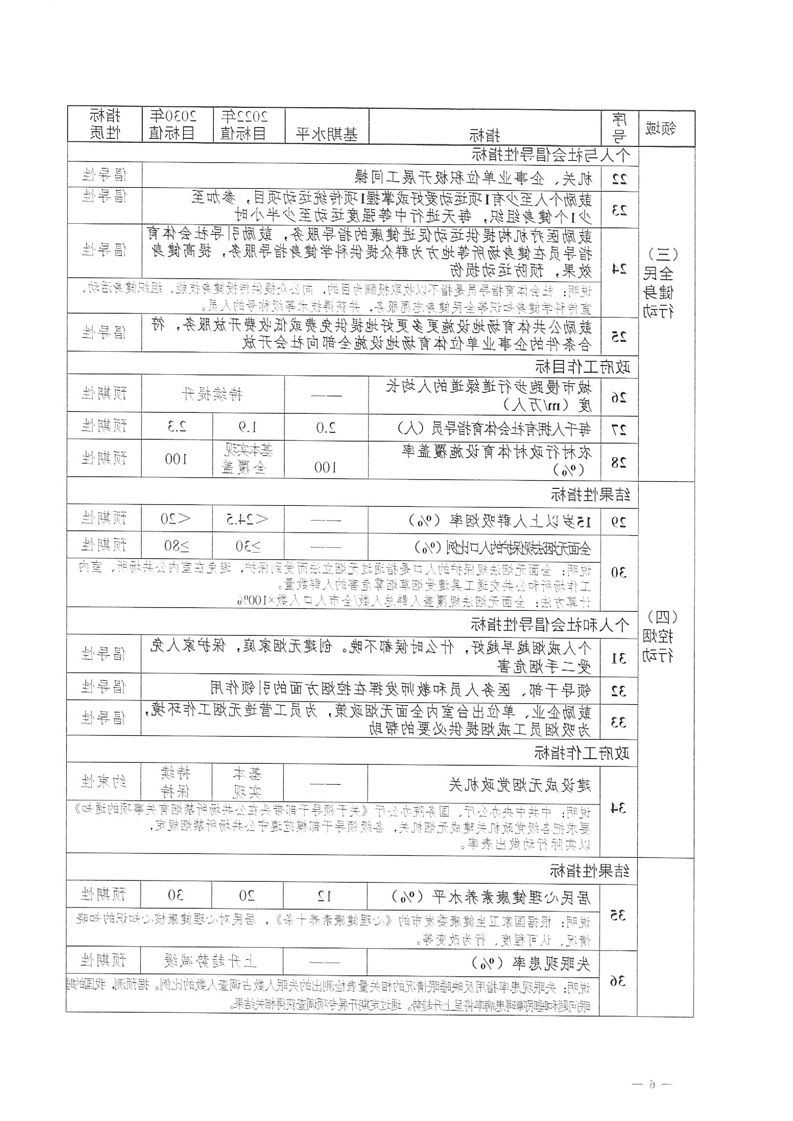 领域 序号 指标 基期水平 2022年目标值 2030年目标值 指标性质
(三)全民健身行动
个人与社会倡导性指标
22 机关、企事业单位积极开展工间操 倡导性
23 鼓励个人至少有1项运动爱好或掌握1项传统运动项目,参加至
少1个健身组织,每天进行中等强度运动至少半小时 倡导性
24 鼓励医疗机构提供运动促进健康的指导服务,鼓励引导社会体育
指导员在健身场所等地方为群众提供科学健身指导服务,提高健身
效果,预防运动损伤 倡导性
说明:社会体育指导员是指不以收取报酬为目的,向公众提供传授健身技能、组织健身活动、
宣传科学健身知识等全民健身志愿服务,并获得技术等级称号的人员。
25 鼓励公共体育场地设施更多更好地提供免费或低收费开放服务,符
合条件的企事业单位体育场地设施全部向社会开放 倡导性
政府工作目标
26 城市慢跑步行道绿道的人均长
度(m/万人) —— 持续提升 预期性
27 每千人拥有社会体育指导员(人) 2.0 1.9 2.3 预期性
28 农村行政村体育设施覆盖率
(%) 100 基本实现全覆盖 100 预期性
(四)控烟行动
结果性指标
29 15岁以上人群吸烟率(%) —— <24.5 <20 预期性
30 全面无烟法规保护的人口比例(%) —— ≥30 ≥80 预期性
说明:全面无烟法规保护的人口是指通过无烟立法而受到保护,避免在室内公共场所、室内
工作场所和公共交通工具遭受烟草烟雾危害的人群数量。
计算方法:全面无烟法规覆盖人群总人数/全市人口人数×100%
个人和社会倡导性指标
31 个人戒烟越早越好,什么时候都不晚。创建无烟家庭,保护家人免
受二手烟危害 倡导性
32 领导干部、医务人员和教师发挥在控烟方面的引领作用 倡导性
33 鼓励企业、单位出台室内全面无烟政策,为员工营造无烟工作环境,
为吸烟员工戒烟提供必要的帮助 倡导性
政府工作指标
34 建设成无烟党政机关 —— 基本实现 持续保持 约束性
说明:中共中央办公厅、国务院办公厅《关于领导干部带头在公共场所禁烟有关事项的通知》
要求把各级党政机关建成无烟机关,各级领导干部模范遵守公共场所禁烟规定,
以实际行动做出表率。
结果性指标
35 居民心理健康素养水平(%) 12 20 30 预期性
说明:根据国家卫生健康委发布的《心理健康素养十条》,居民对心理健康核心知识的知晓
情况、认可程度、行为改变等。
36 失眠现患率(%) —— 上升趋势减缓 预期性
说明:失眠现患率指用反映睡眠情况的相关量表检测出的失眠人数占调查人数的比例。据预测,我国的睡
眠问题和睡眠障碍患病率将呈上升趋势。通过定期开展专项调查获得相关结果。
— 6 —